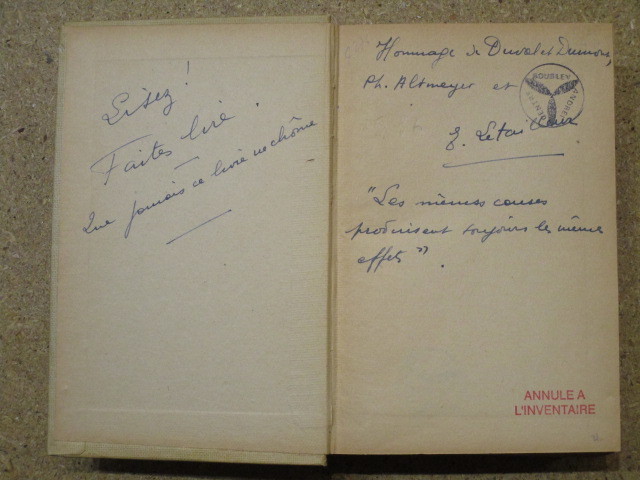 Lisez!
Faites lire.
Que jamais ce livre ne chôme
Hommage de Duval et Dumons,
Ph. Altmeyer et
E. Letail
"Les mêmes causes
produisent toujours les mêmes
effets".
ANNULE A
L'INVENTAIRE